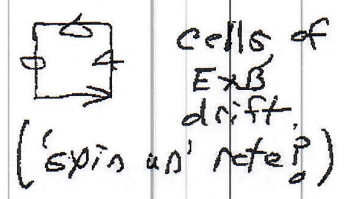 cells of
E×B
drift
('spin up' rate?)